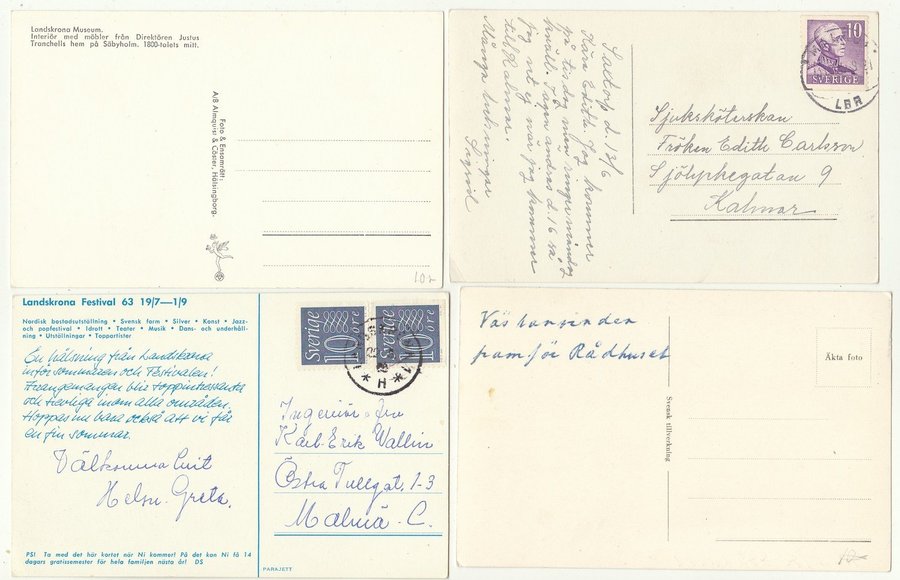 Landskrona Museum.
Interiör med möbler från Direktören Justus
Tranchells hem på Säbyholm. 1800-talets mitt.
Foto & Ensamrätt:
A/B Almquist & Cöster, Hälsingborg.
10:-
d. 13/6
Kära Edith. Jag kommer
på tisdag men ringer måndag
kväll. Tagen ändras d. 16 så
jag vet ej när jag kommer
till Kalmar.
Många hälsningar
Sigrid
10
SVERIGE
LBR
Sjuksköterskan
Fröken Edith Carlsson
9
Kalmar
Landskrona Festival 63 19/7—1/9
Nordisk bostadsutställning • Svensk form • Silver • Konst • Jazz-
och popfestival • Idrott • Teater • Musik • Dans- och underhåll-
ning • Utställningar • Toppartister
En hälsning från Landskrona
inför sommaren och Festivalen!
Arrangemangen blir toppintressanta
och trevliga inom alla områden.
Hoppas nu bara också att vi får
en fin sommar.
Välkomna hit
Helsn. Greta.
PS! Ta med det här kortet när Ni kommer! På det kan Ni få 14
dagars gratissemester för hela familjen nästa år! DS
PARAJETT
Sverige
10 ÖRE
Sverige
10 ÖRE
Ingeniör o. fru
Karl-Erik Wallin
Östra Tullgat. 1-3
Malmö C.
framför Rådhuset
Äkta foto
Svensk tillverkning
10:-